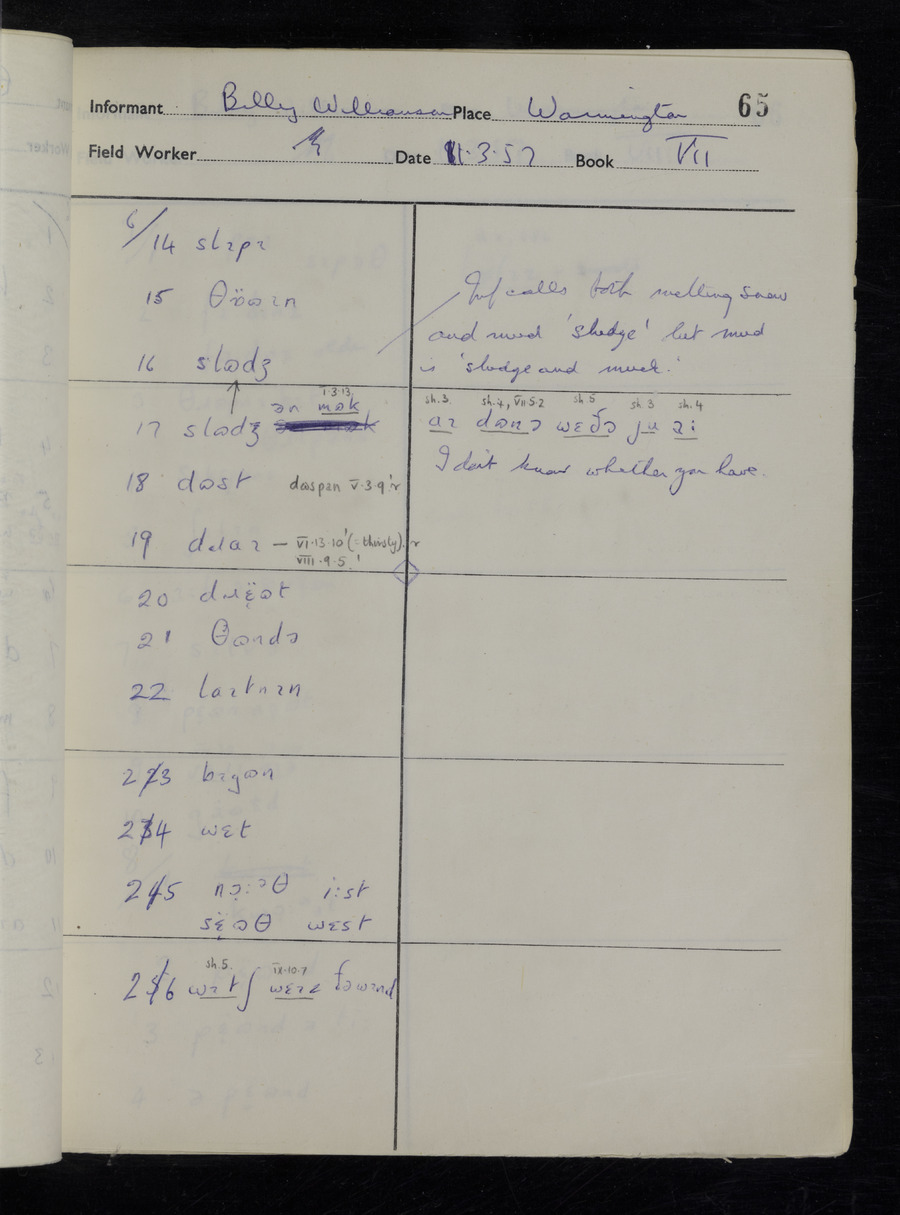 Informant Billy Williamson Place Warmington 65
Field Worker Date 11.3.57 Book VII
6/14 slɪpɪ
15 θöɷɪn
16 slɷdʒ
Inf calls both melting snow
and mud 'sludge' but mud
is 'sludge and muck.'
17 slɷdʒ ən mɷk I.3.13.
sh.3. sh.4, VII.5.2 sh 5 sh 3 sh.4
aɪ dɷnə wɛðə ju
I don't know whether you have.
18 dɷst dɷspan V.3.9.'r
19 dɹaɪ — VI.13.10' (=thirsty). 'r
VIII.9.5.'
20 dɹɛ̈ɷt
21 θɷndə
22 laɪtnɪn
23 bɪgɷn
24 wɛt
25 nɔ̣:əθ i:st
sɛ̈ɷθ wɛst
sh.5. IX.10.7
26 wɪtʃ wɛɪz